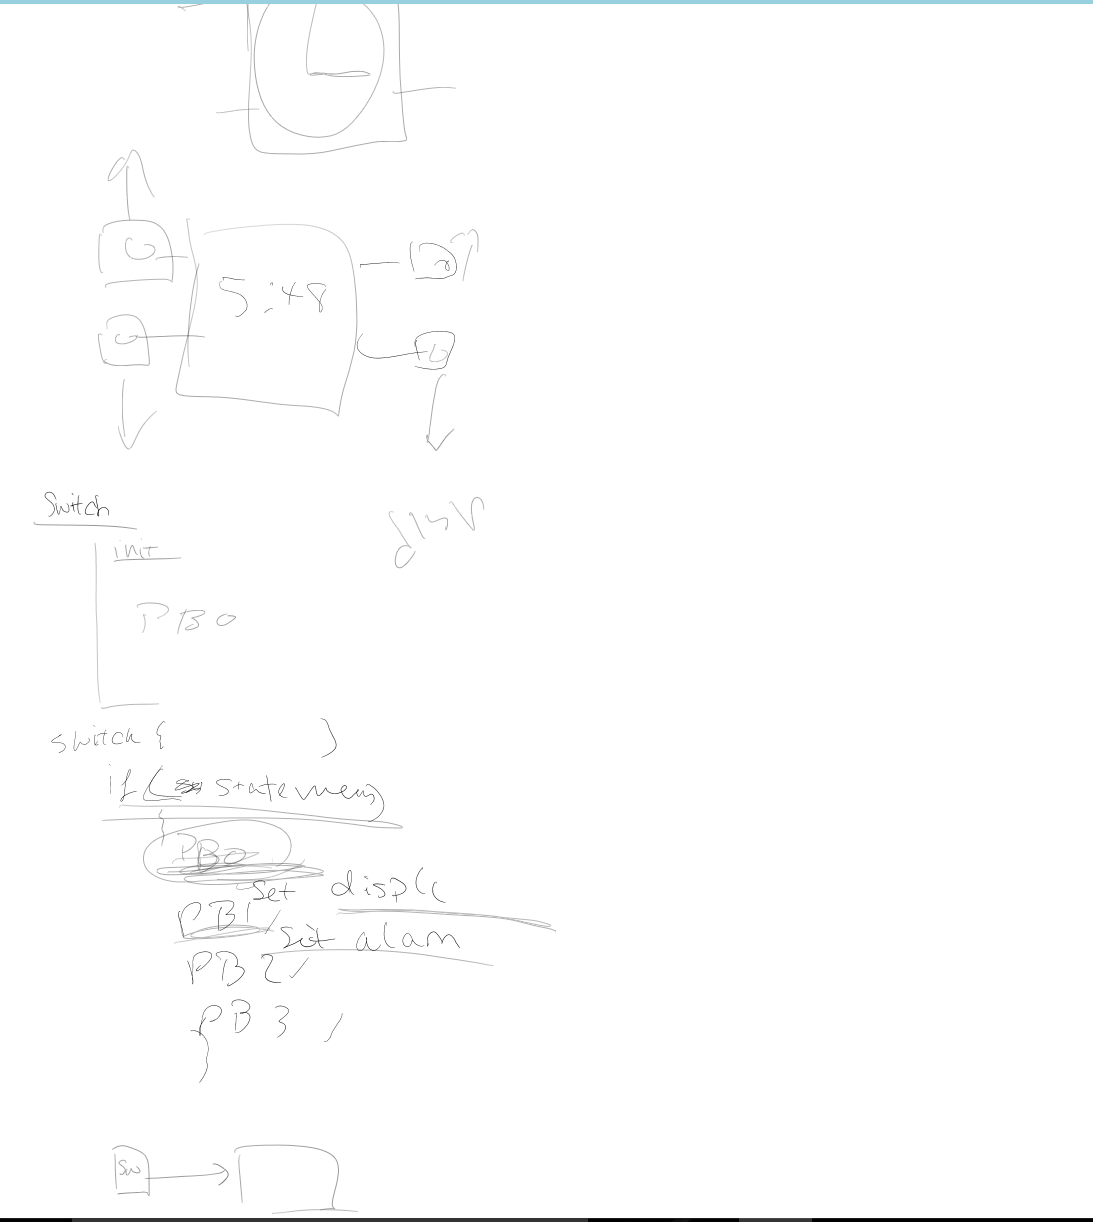 5:48
Switch
disp
init
PB0
switch {                }
if ( statemen)
{
PB0
set disple
PB1,
set alam
PB2,
PB3 ,
}
SW